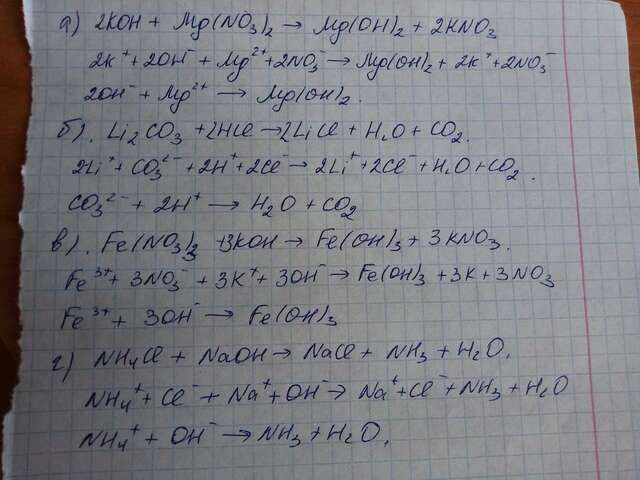 а) 2KOH + Mg(NO₃)₂ → Mg(OH)₂ + 2KNO₃
2K⁺ + 2OH⁻ + Mg²⁺ + 2NO₃⁻ → Mg(OH)₂ + 2K⁺ + 2NO₃⁻
2OH⁻ + Mg²⁺ → Mg(OH)₂.
б). Li₂CO₃ + 2HCl → 2LiCl + H₂O + CO₂.
2Li⁺ + CO₃²⁻ + 2H⁺ + 2Cl⁻ → 2Li⁺ + 2Cl⁻ + H₂O + CO₂.
CO₃²⁻ + 2H⁺ → H₂O + CO₂
в). Fe(NO₃)₃ + 3KOH → Fe(OH)₃ + 3KNO₃.
Fe³⁺ + 3NO₃⁻ + 3K⁺ + 3OH⁻ → Fe(OH)₃ + 3K + 3NO₃
Fe³⁺ + 3OH⁻ → Fe(OH)₃
г) NH₄Cl + NaOH → NaCl + NH₃ + H₂O.
NH₄⁺ + Cl⁻ + Na⁺ + OH⁻ → Na⁺ + Cl⁻ + NH₃ + H₂O
NH₄⁺ + OH⁻ → NH₃ + H₂O.